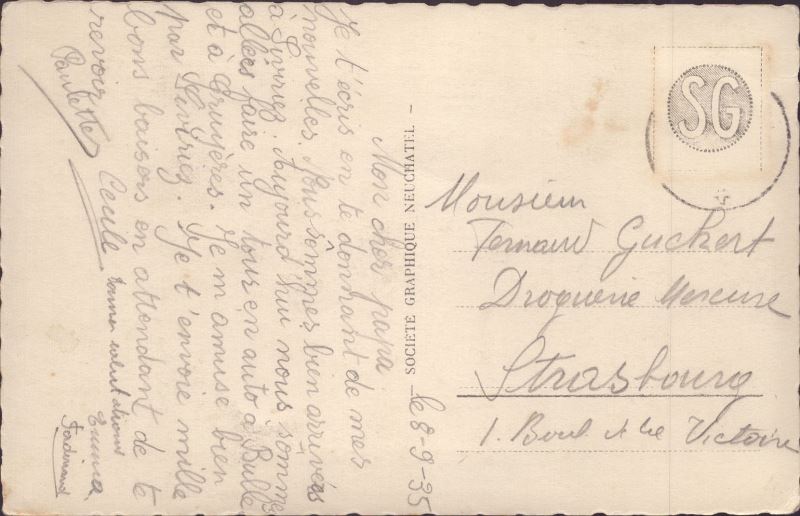 le 8-9-35
Mon cher papa
Je t'écris en te donnant de mes
nouvelles. Nous sommes bien arrivées
à Siviriez. Aujourd'hui nous somme
allées faire un tour en auto à Bulle
et à Gruyères. Je m'amuse bien
par Siviriez. Je t'envoie mille
bons baisers en attendant de te
revoir
Paulette
Cécile
Emma
Ferdinand
— SOCIETE GRAPHIQUE NEUCHATEL —
SG
Monsieur
Fernand Guckert
Droguerie Mercure
Strasbourg
1. Boul de la Victoire